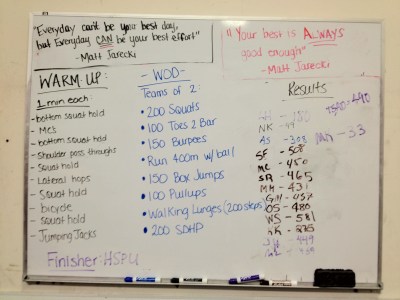 "Everyday can't be your best day,
but Everyday CAN be your best effort"
-Matt Jarecki
"Your best is ALWAYS
good enough"
-Matt Jarecki
WARM UP:
1 min each:
-bottom squat hold
-MC's
-bottom squat hold
-shoulder pass throughs
-squat hold
-Lateral hops
-Squat hold
-bicycle
-squat hold
-Jumping Jacks
Finisher: HSPU
-WOD-
Teams of 2:
•200 Squats
•100 Toes 2 Bar
•150 Burpees
•Run 400m w/ball
•150 Box Jumps
•100 Pullups
•Walking Lunges (200 steps)
•200 SDHP
Results
NK
AS - 308
SF - 508
MC - 450
SR - 465
MH
OS - 480
WS - 581
- 275
- 449